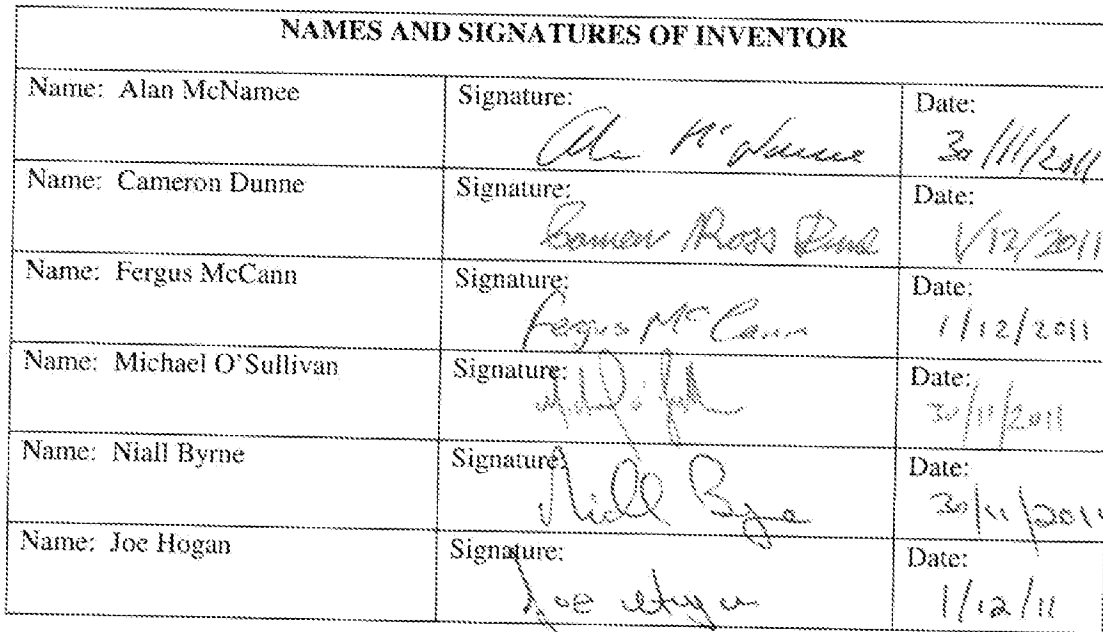 NAMES AND SIGNATURES OF INVENTOR
Name: Alan McNamee Signature: Date:
Alan McNamee 30/11/2011
Name: Cameron Dunne Signature: Date:
Cameron Ross Dunne 1/12/2011
Name: Fergus McCann Signature: Date:
Fergus McCann 1/12/2011
Name: Michael O'Sullivan Signature: Date:
30/11/2011
Name: Niall Byrne Signature: Date:
Niall Byrne 30/11/2011
Name: Joe Hogan Signature: Date:
Joe Hogan 1/12/11